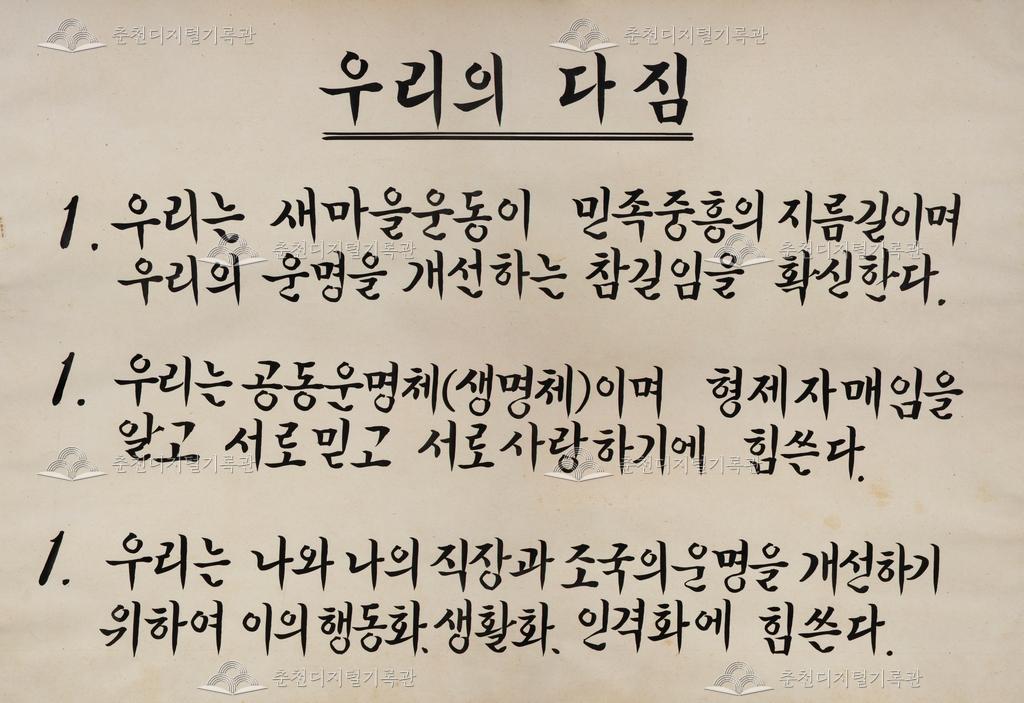 춘천디지털기록관 춘천디지털기록관
우리의 다짐
1. 우리는 새마을운동이 민족중흥의 지름길이며
춘천디지털기록관 춘천디지털기록관
우리의 운명을 개선하는 참길임을 확신한다.
1. 우리는 공동운명체(생명체)이며 형제자매임을
알고 서로믿고 서로사랑하기에 힘쓴다.
춘천디지털기록관 춘천디지털기록관
1. 우리는 나와 나의 직장과 조국의운명을 개선하기
위하여 이의행동화, 생활화, 인격화에 힘쓴다.
춘천디지털기록관 춘천디지털기록관